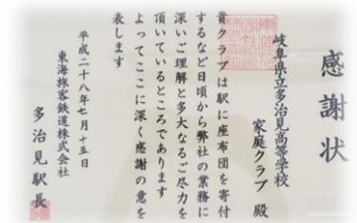 感謝状
岐阜県立多治見高等学校
家庭クラブ 殿
貴クラブは駅に座布団を寄付
するなど日頃から弊社の業務に
深いご理解と多大なるご尽力を
頂いているところであります
よってここに深く感謝の意を
表します
平成二十八年七月十五日
東海旅客鉄道株式会社
多治見駅長